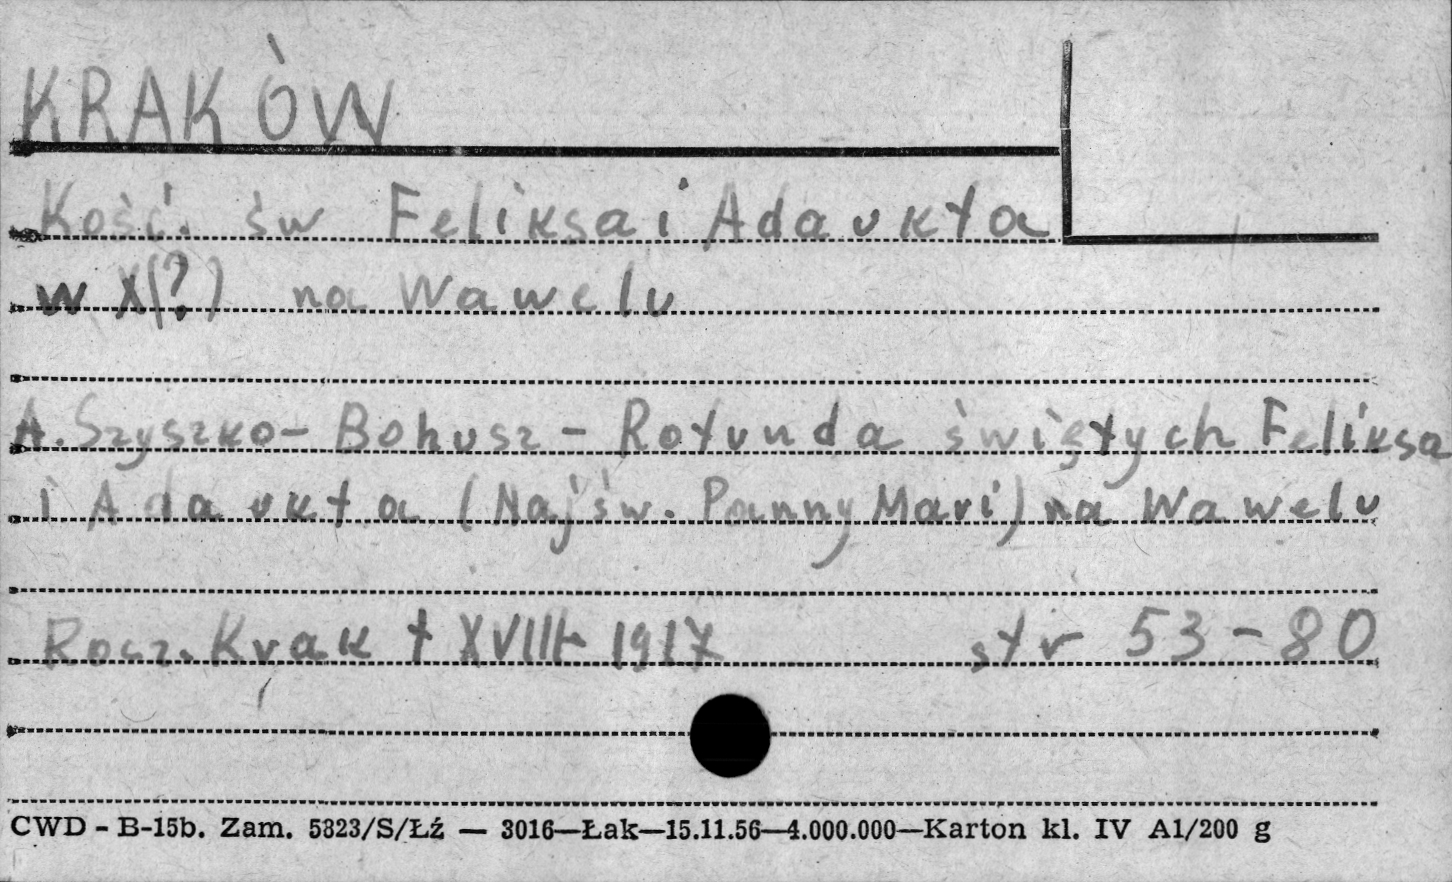 KRAKÓW
Kość. św Feliksa i Adaukta
w X(?) na Wawelu
A. Szyszko-Bohusz - Rotunda świętych Feliksa
i Adaukta (Najśw. Panny Mari) na Wawelu
Rosz. Krak t XVIII 1917 str 53-80
CWD - B-15b. Zam. 5823/S/Łź — 3016—Łak—15.11.56—4.000.000—Karton kl. IV A1/200 g